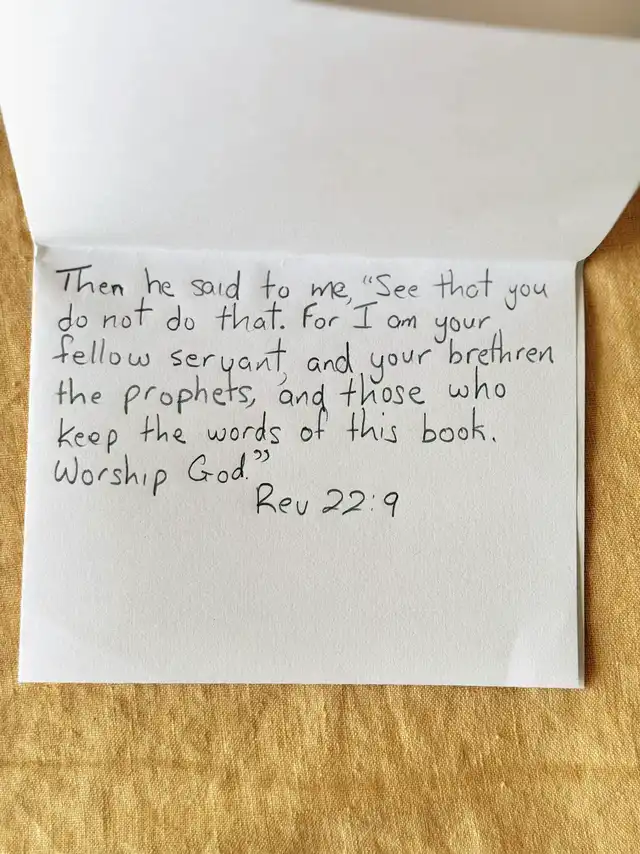 Then he said to me, "See that you
do not do that. For I am your
fellow servant, and your brethren
the prophets, and those who
keep the words of this book.
Worship God."
Rev 22:9